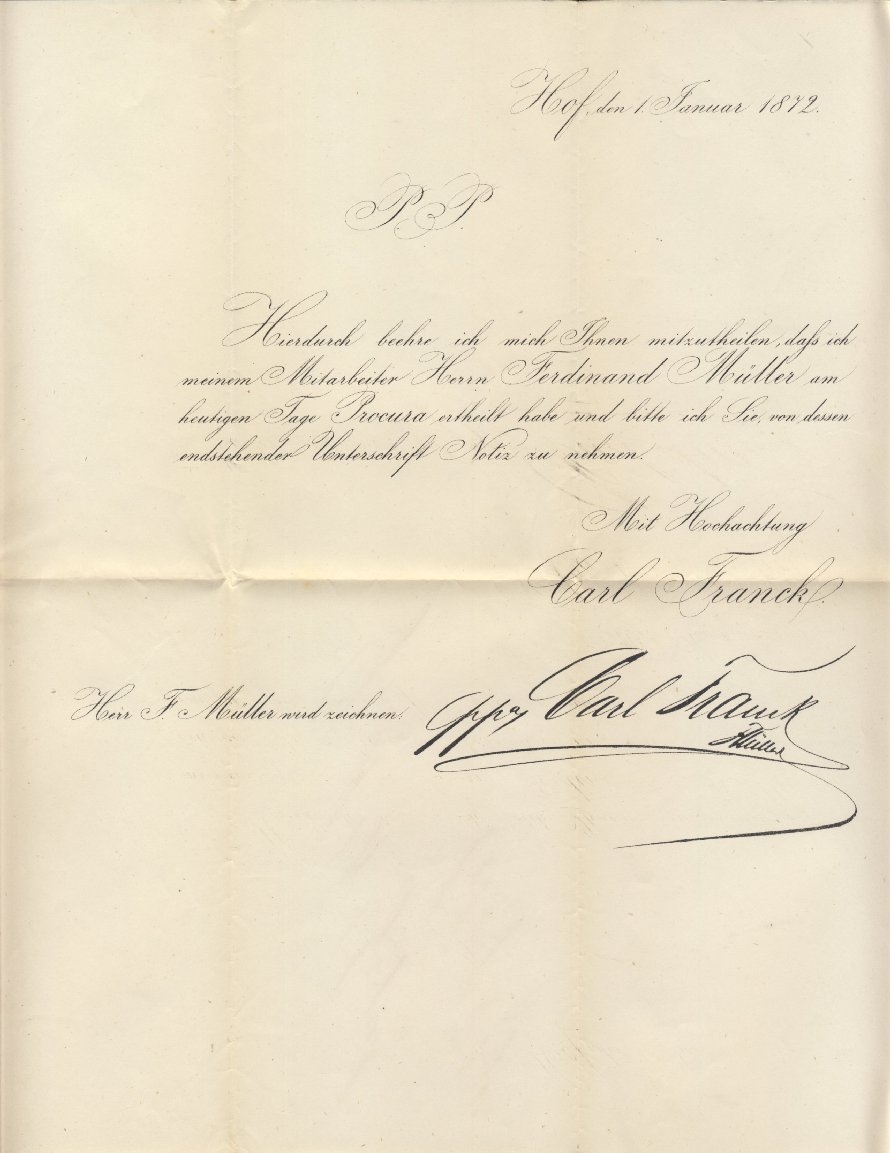 Hof, den 1. Januar 1872.
P. P.
Hierdurch beehre ich mich Ihnen mitzutheilen, daſs ich
meinem Mitarbeiter Herrn Ferdinand Müller am
heutigen Tage Procura ertheilt habe und bitte ich Sie, von dessen
endstehender Unterschrift Notiz zu nehmen.
Mit Hochachtung
Carl Franck.
Herr F. Müller wird zeichnen: ppa Carl Franck
FMüller